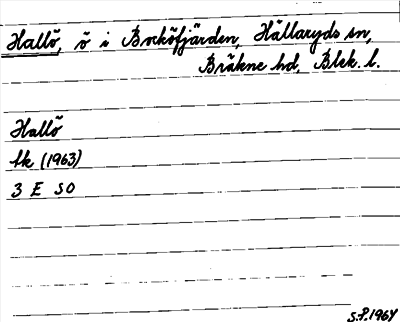 Hallö, ö i Bocköfjärden, Hällaryds sn,
Bräkne hd, Blek. l.
Hallö
tk (1963)
3 E SO
S.P.1964